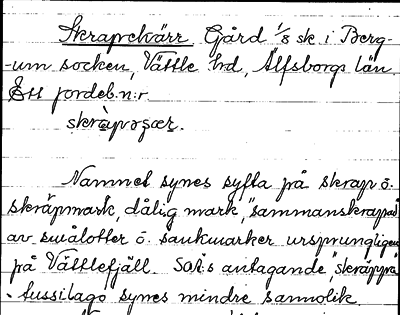 Skrapekärr Gård 1/8 sk i Berg-
-um socken, Vättle hd, Älfsborgs län.
Ett jordeb.n:r
skrὰpəɟær.
Namnet synes syfta på skrap o.
skräpmark, dålig mark, "sammanskrapad"
av smålotter o. sankmarker ursprungligen
på Vättlefjäll. SOÅ:s antagande, "skräppa"
- tussilago synes mindre sannolik.